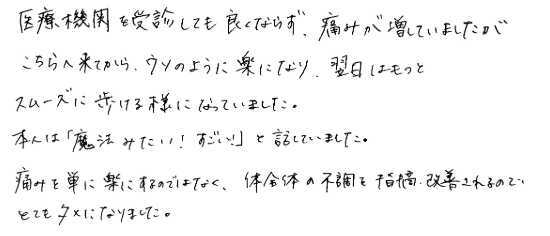 医療機関を受診しても良くならず、痛みが増していましたが
こちらへ来てから、ウソのように楽になり、翌日はもっと
スムーズに歩ける様になっていました。
本人は「魔法みたい！すごい！」と話していました。
痛みを単に楽にするのではなく、体全体の不調を指摘・改善されるので、
とてもタメになりました。